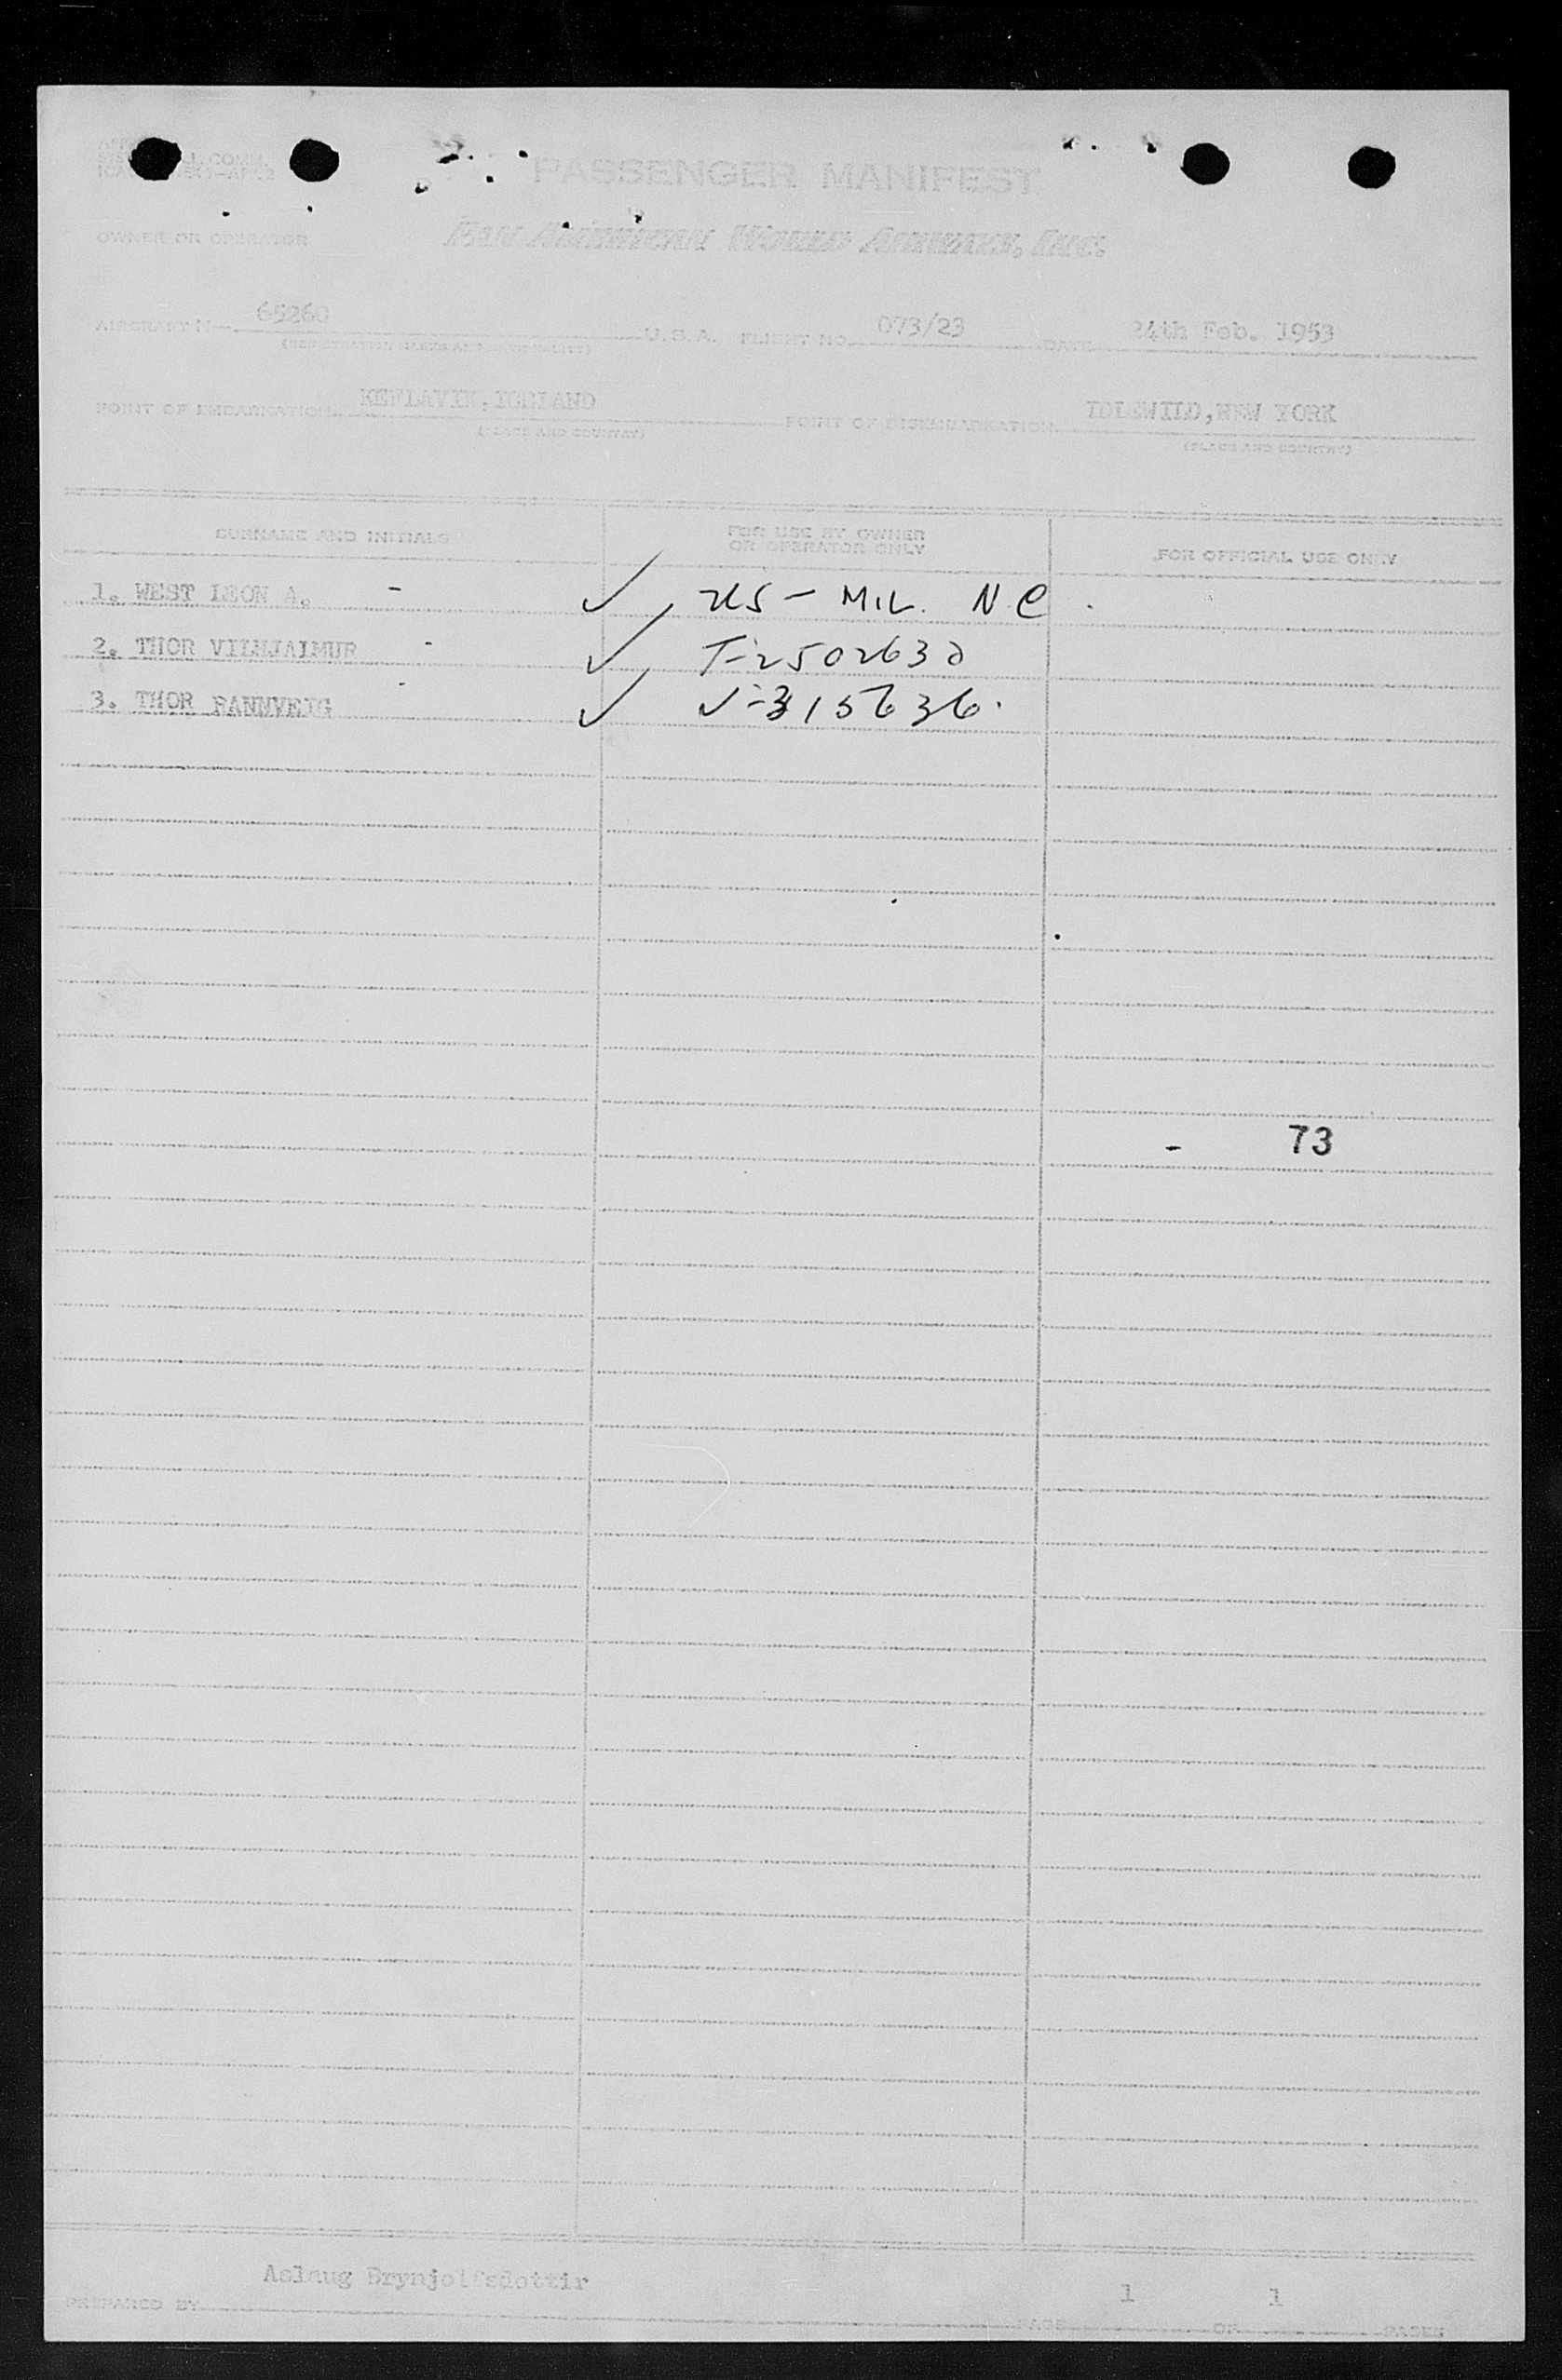 PASSENGER MANIFEST
OWNER OR OPERATOR PAN AMERICAN WORLD AIRWAYS, INC.
AIRCRAFT N— 65260 U.S.A. FLIGHT NO. 073/23 DATE 24th Feb. 1953
POINT OF EMBARKATION KEFLAVIK, ICELAND POINT OF DISEMBARKATION IDLEWILD, NEW YORK
(PLACE AND COUNTRY) (PLACE AND COUNTRY)
SURNAME AND INITIALS FOR USE BY OWNER OR OPERATOR ONLY FOR OFFICIAL USE ONLY
1. WEST LEON A. - ✓ US - MIL. N C
2. THOR VILHJALMUR - ✓ T-2502632
3. THOR RANNVEIG - ✓ V-315636.
- 73
Aslaug Brynjolfsdottir 1 1
PREPARED BY PAGE OF PAGES